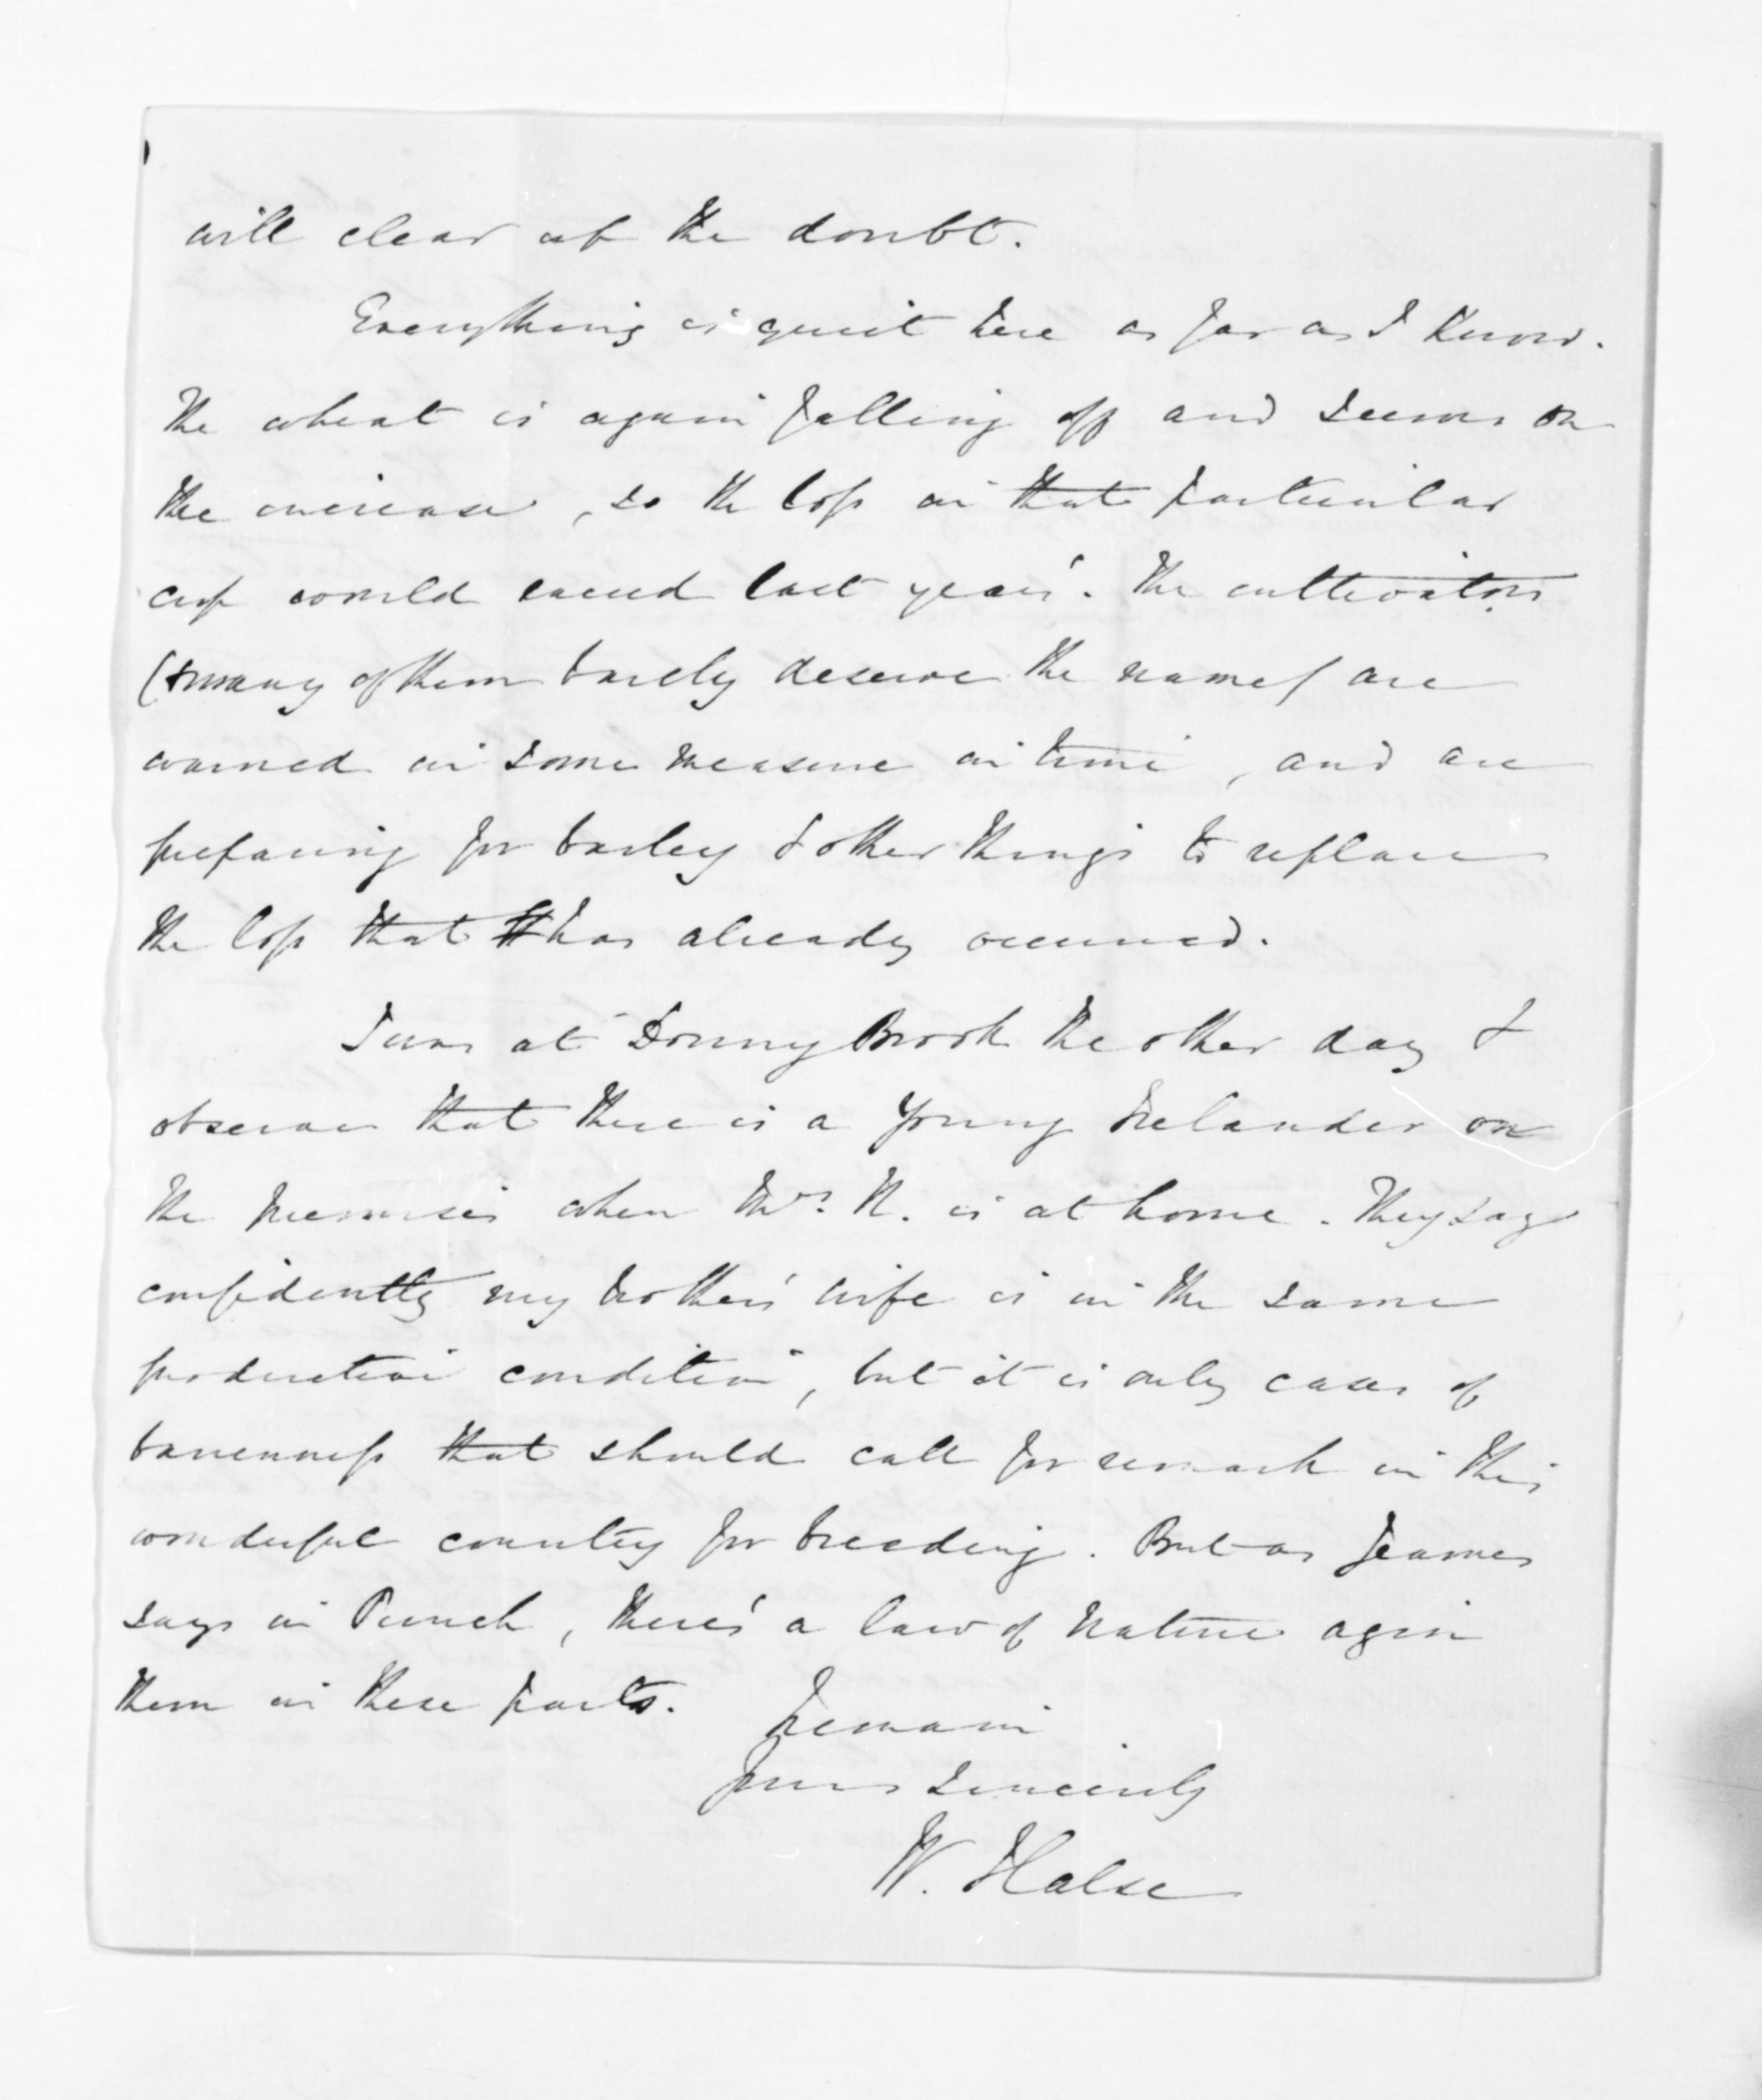 will clear up the doubt.
Everything is quiet here as far as I know.
The wheat is again falling off and seems on
the increase, so the loss in that particular
crop would exceed last year's. The cultivators
(& many of them barely deserve the name) are
warned in some measure in time, and are
preparing for barley & other things to replace
the loss that has already occurred.
I was at Donny Brook the other day &
observe that there is a Young Irelander on
the premises when Mrs. N. is at home. They say
confidently my brother's wife is in the same
productive condition, but it is only cases of
barrenness that should call for remark in this
wonderful country for breeding. But as Jeames
says in Punch, there's a law of nature agin
them in these parts.
I remain
Yours sincerely
W. Halse